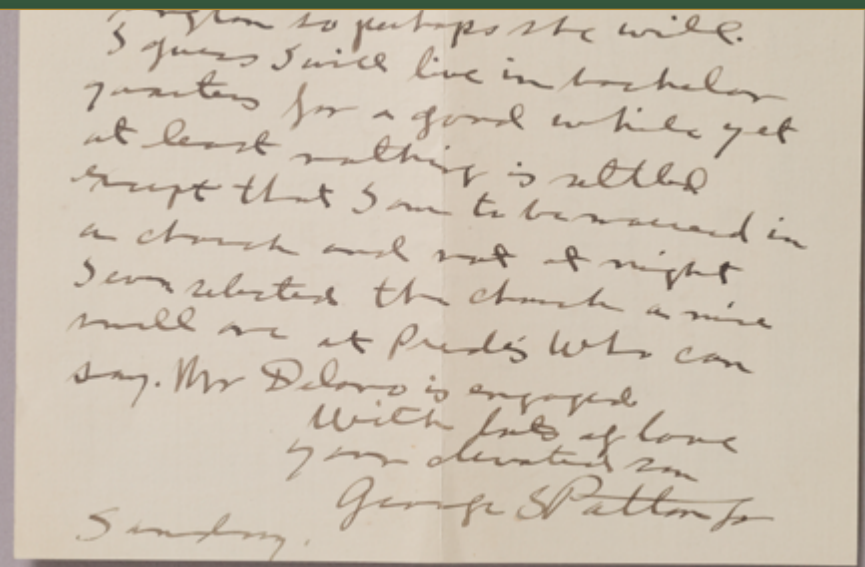 so perhaps she will.
I guess I will live in bachelor
quarters for a good while yet
at least nothing is settled
except that I am to be married in
a church and not at night
I even selected the church a nice
small one at Prides Who can
say. Mr Delano is engaged
With lots of love
your devoted son
George S Patton Jr
Sunday.